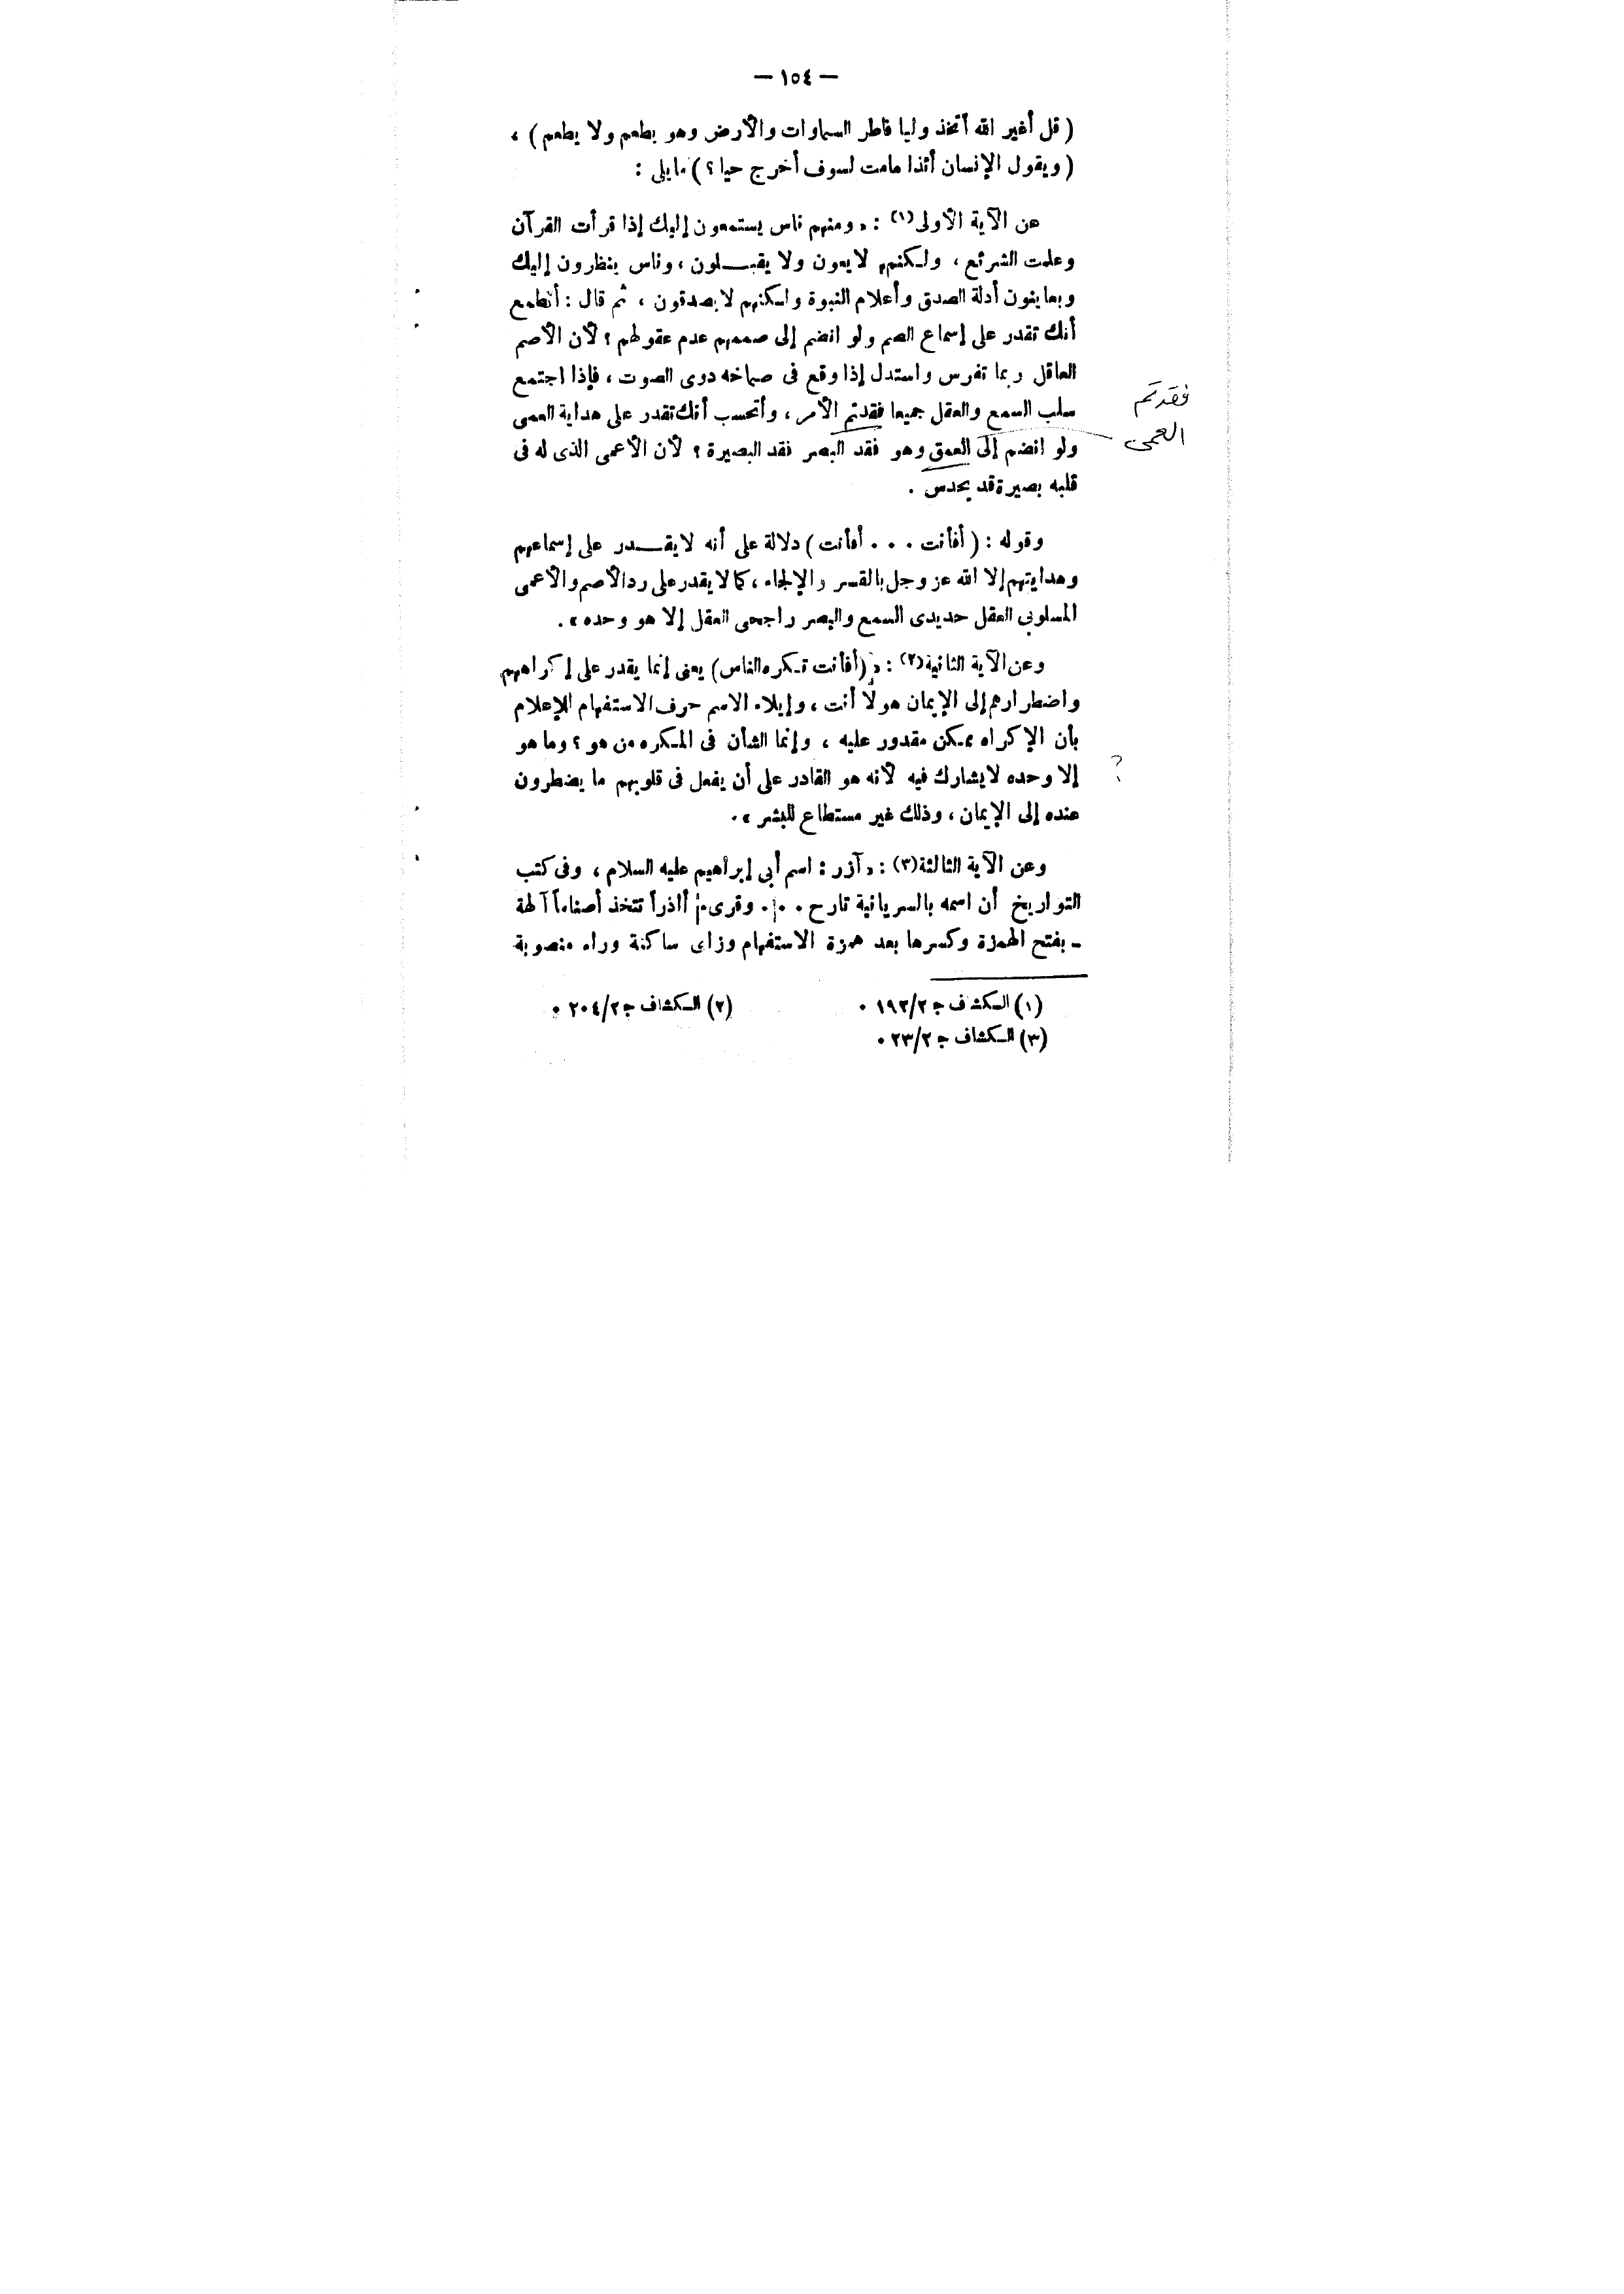 — ١٥٤ —
( قل أغير الله أتخذ وليا فاطر السماوات والأرض وهو يطعم ولا يطعم ) ،
( ويقول الإنسان أئذا مامت لسوف أخرج حيا ؟ ) مايلى :
عن الآية الأولى(١) : « ومنهم ناس يستمعون إليك إذا قرأت القرآن
وعلمت الشرئع ، ولكنهم لايعون ولا يقبلون ، وناس ينظرون إليك
ويعاينون أدلة الصدق وأعلام النبوة ولكنهم لايصدقون ، ثم قال : أتطمع
أنك تقدر على إسماع الصم ولو انضم إلى صممهم عدم عقولهم ؟ لأن الأصم
العاقل ربما تفرس واستدل إذا وقع فى صماخه دوى الصوت ، فإذا اجتمع
سلب السمع والعقل جميعا فقدتم الأمر ، وأتحسب أنك تقدر على هداية العمى
فقدتم
ولو انضم إلى العمق وهو فقد البصر فقد البصيرة ؟ لأن الأعمى الذى له فى
العمى
قلبه بصيرة قد يحدس .
وقوله : ( أفأنت . . . أفأنت ) دلالة على أنه لايقدر على إسماعهم
وهدايتهم إلا الله عز وجل بالقسر والإلجاء ، كما لا يقدر على رد الأصم والأعمى
المسلوبى العقل حديدى السمع والبصر راجحى العقل إلا هو وحده » .
وعن الآية الثانية(٢) : « (أفأنت تكره الناس) يعنى إنما يقدر على إكراههم
واضطرارهم إلى الإيمان هو لا أنت ، وإيلاء الاسم حرف الاستفهام للإعلام
بأن الإكراه ممكن مقدور عليه ، وإنما الشأن فى المكره من هو ؟ وما هو
إلا وحده لايشارك فيه لأنه هو القادر على أن يفعل فى قلوبهم ما يضطرون
عنده إلى الإيمان ، وذلك غير مستطاع للبشر » .
وعن الآية الثالثة(٣) : « آزر : اسم أبى إبراهيم عليه السلام ، وفى كتب
التواريخ أن اسمه بالسريانية تارح . . . وقرىء أأذراً تتخذ أصناماً آلهة
ـ بفتح الهمزة وكسرها بعد همزة الاستفهام وزاى ساكنة وراء منصوبة
(١) الكشاف ج ١٩٢/٢ . (٢) الكشاف ج ٢٠٤/٢ .
(٣) الكشاف ج ٢٣/٢ .